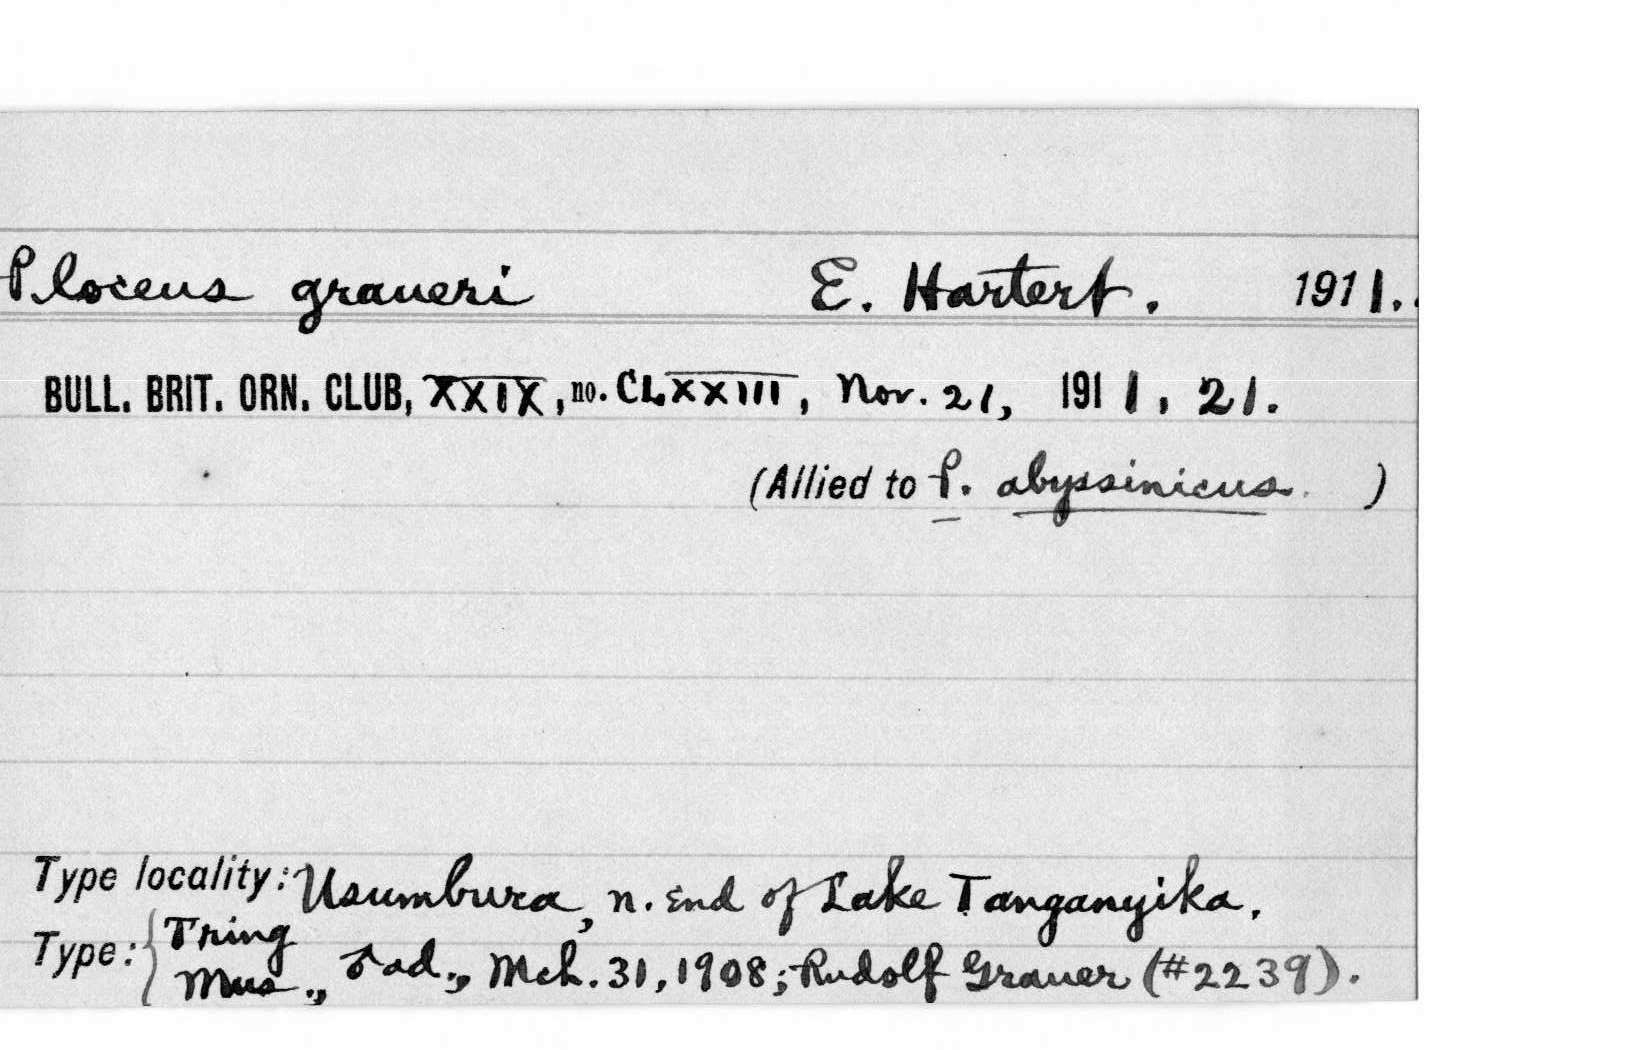 Ploceus graueri E. Hartert. 1911.
BULL. BRIT. ORN. CLUB, XXIX, no. CLXXIII, Nov. 21, 1911, 21.
(Allied to P. abyssinicus. )
Type locality: Usumbura, n. End of Lake Tanganyika.
Type: { Tring Mus., ♂ ad., Mch. 31, 1908; Rudolf Grauer (#2239).